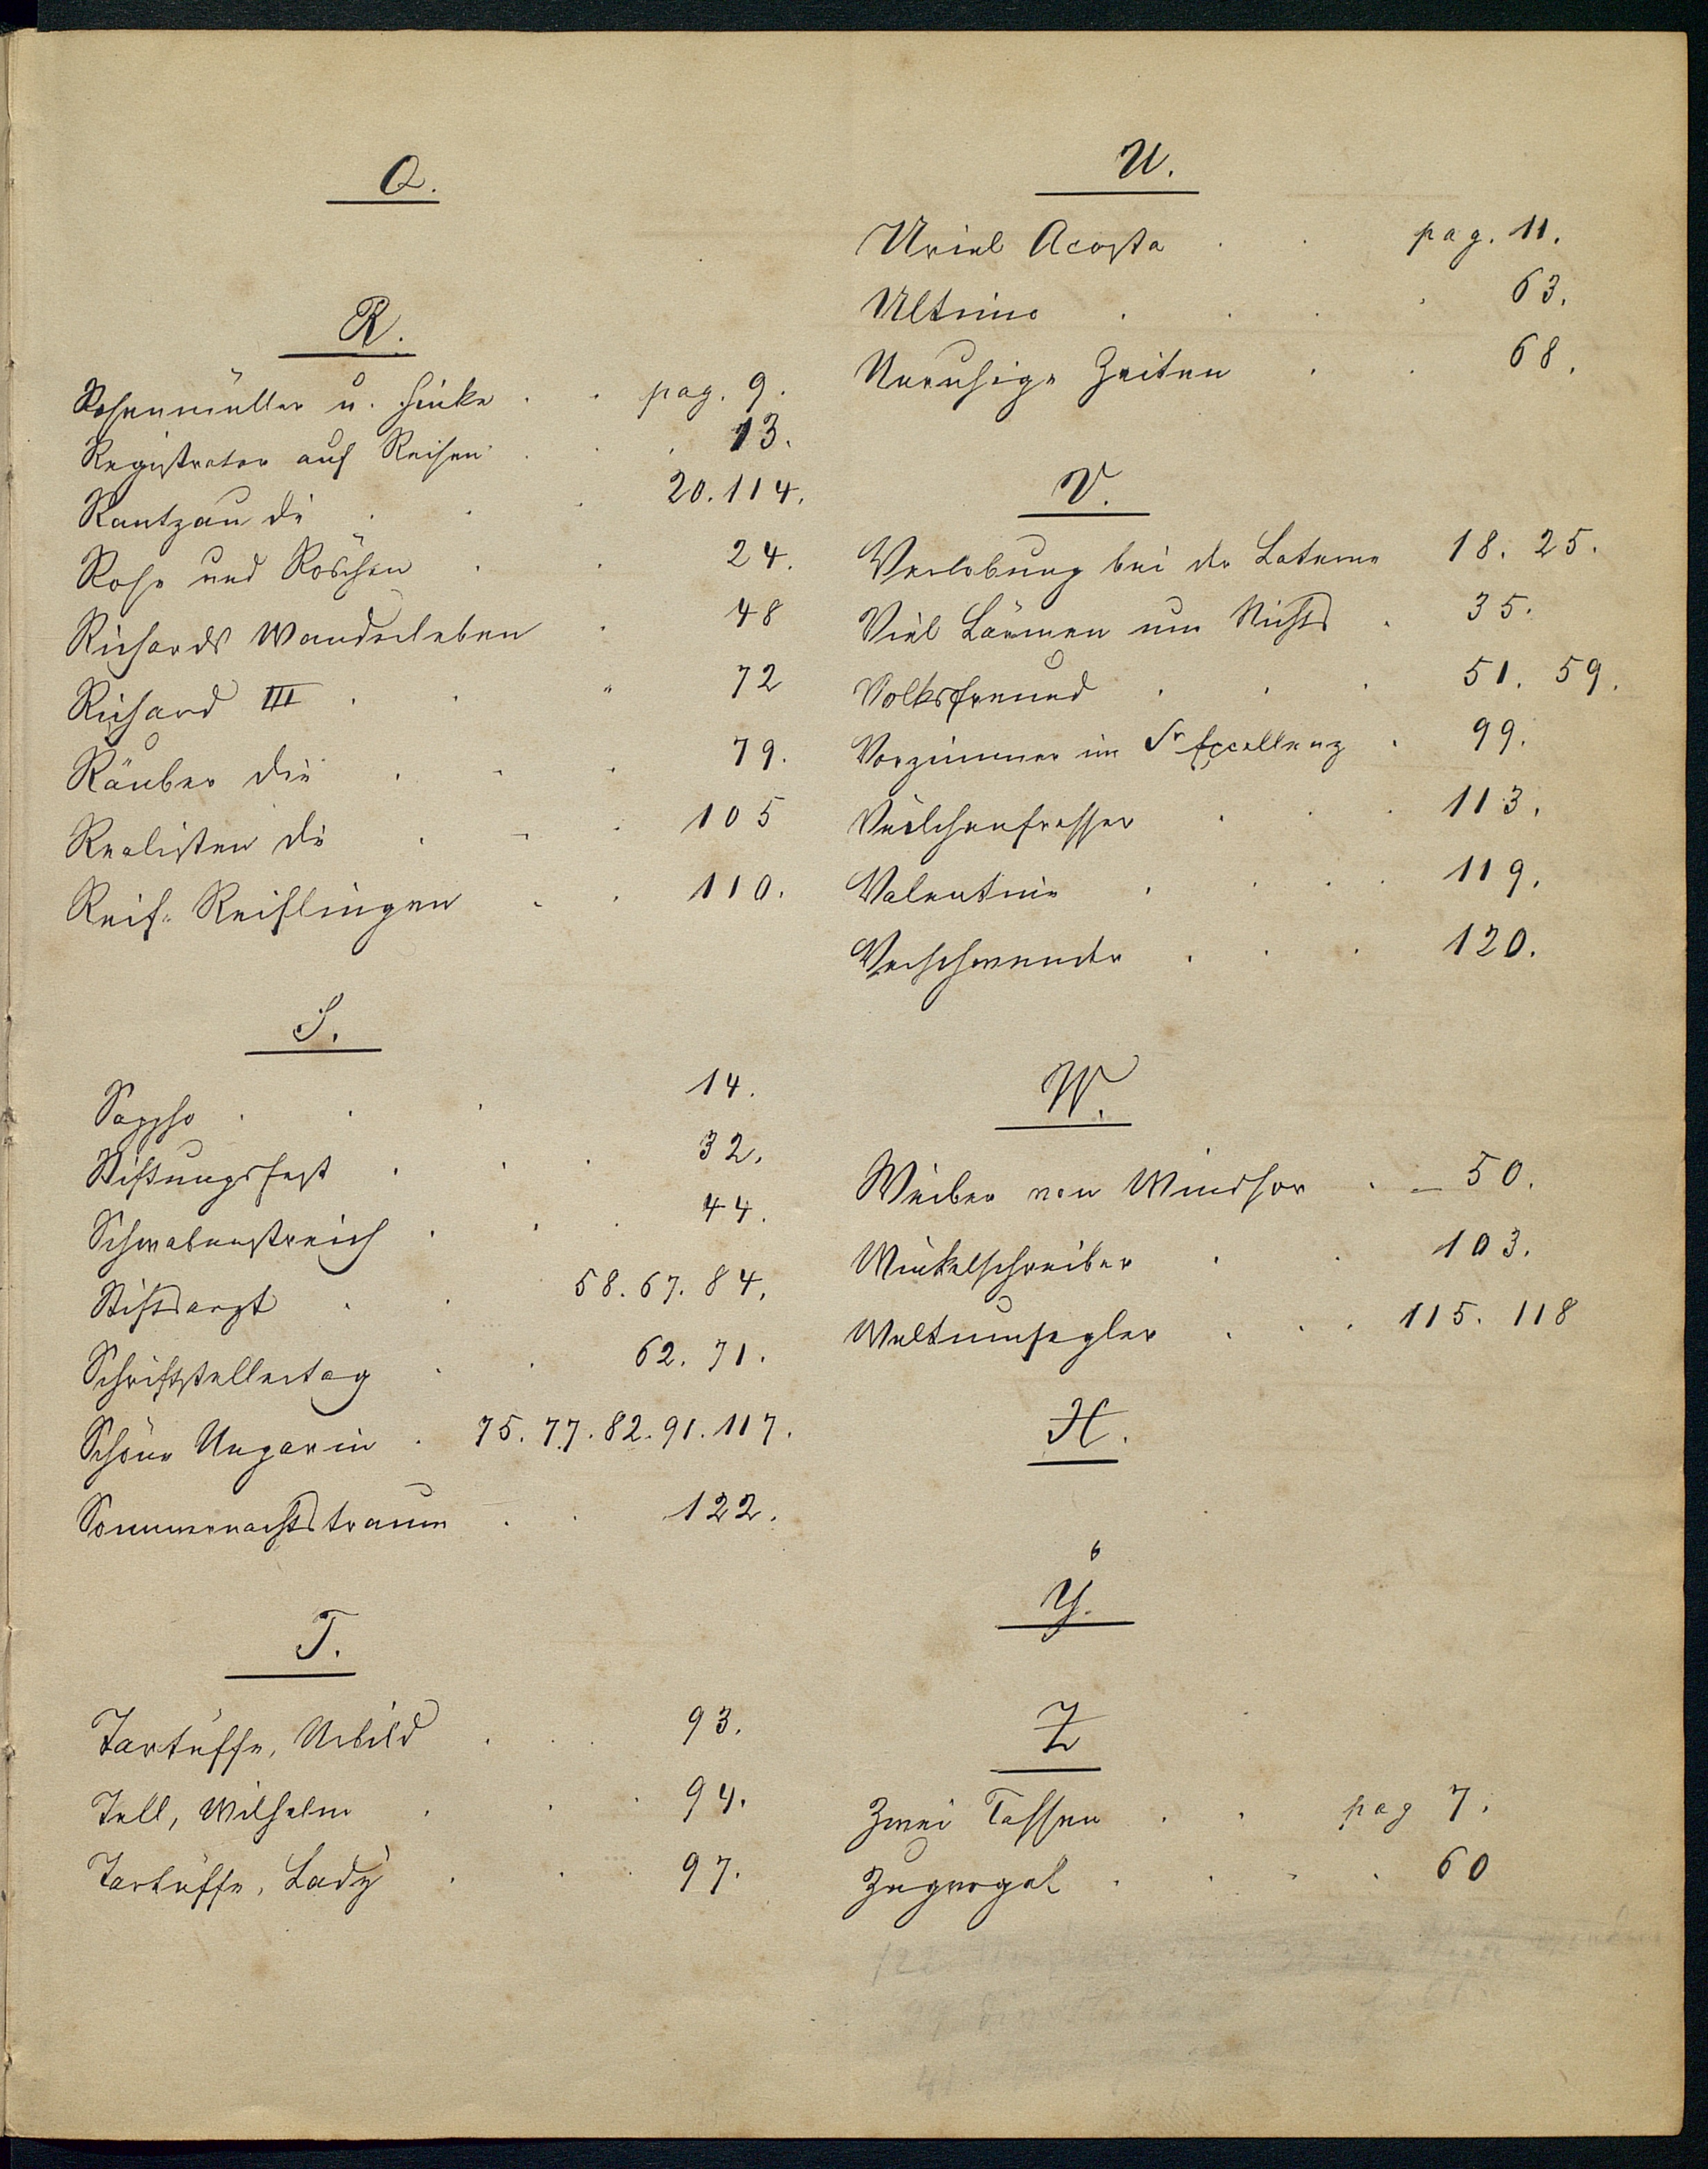 Q.
R.
Rosenmüller u. Finke . . pag. 9.
Registrator auf Reisen . . . 13.
Rantzau die . . . 20. 114.
Rose und Röschen . . 24.
Richards Wanderleben . 48
Richard III . . " 72
Räuber die . . . 79.
Realisten die . . . 105
Reif-Reiflingen . . 110.
S.
Sappho . . . 14.
Stiftungsfest . . . 32.
Schwabenstreich . . . 44.
Stiftsarzt . . 58. 67. 84.
Schriftstellertag . . 62. 71.
Schöne Ungarin . 75. 77. 82. 91. 117.
Sommernachtstraum . . 122.
T.
Tartüffe, Urbild . . . 93.
Tell, Wilhelm . . . 94.
Tartüffe, Lady . . . 97.
U.
Uriel Acosta . . pag. 11.
Ultimo . . . . 63.
Unruhige Zeiten . . 68.
V.
Verlobung bei der Laterne 18. 25.
Viel Lärmen um Nichts . 35.
Volksfreund . . . 51. 59.
Vorzimmer im Sr Excellenz . 99.
Veilchenfresser . . . 113.
Valentine . . . . 119.
Verschwender . . . 120.
W.
Weiber von Windsor . – 50.
Winkelschreiber . . 103.
Weltumsegler . . . 115. 118
X.
Y.
Z
Zwei Tassen . . pag 7.
Zugvogel . . . . 60